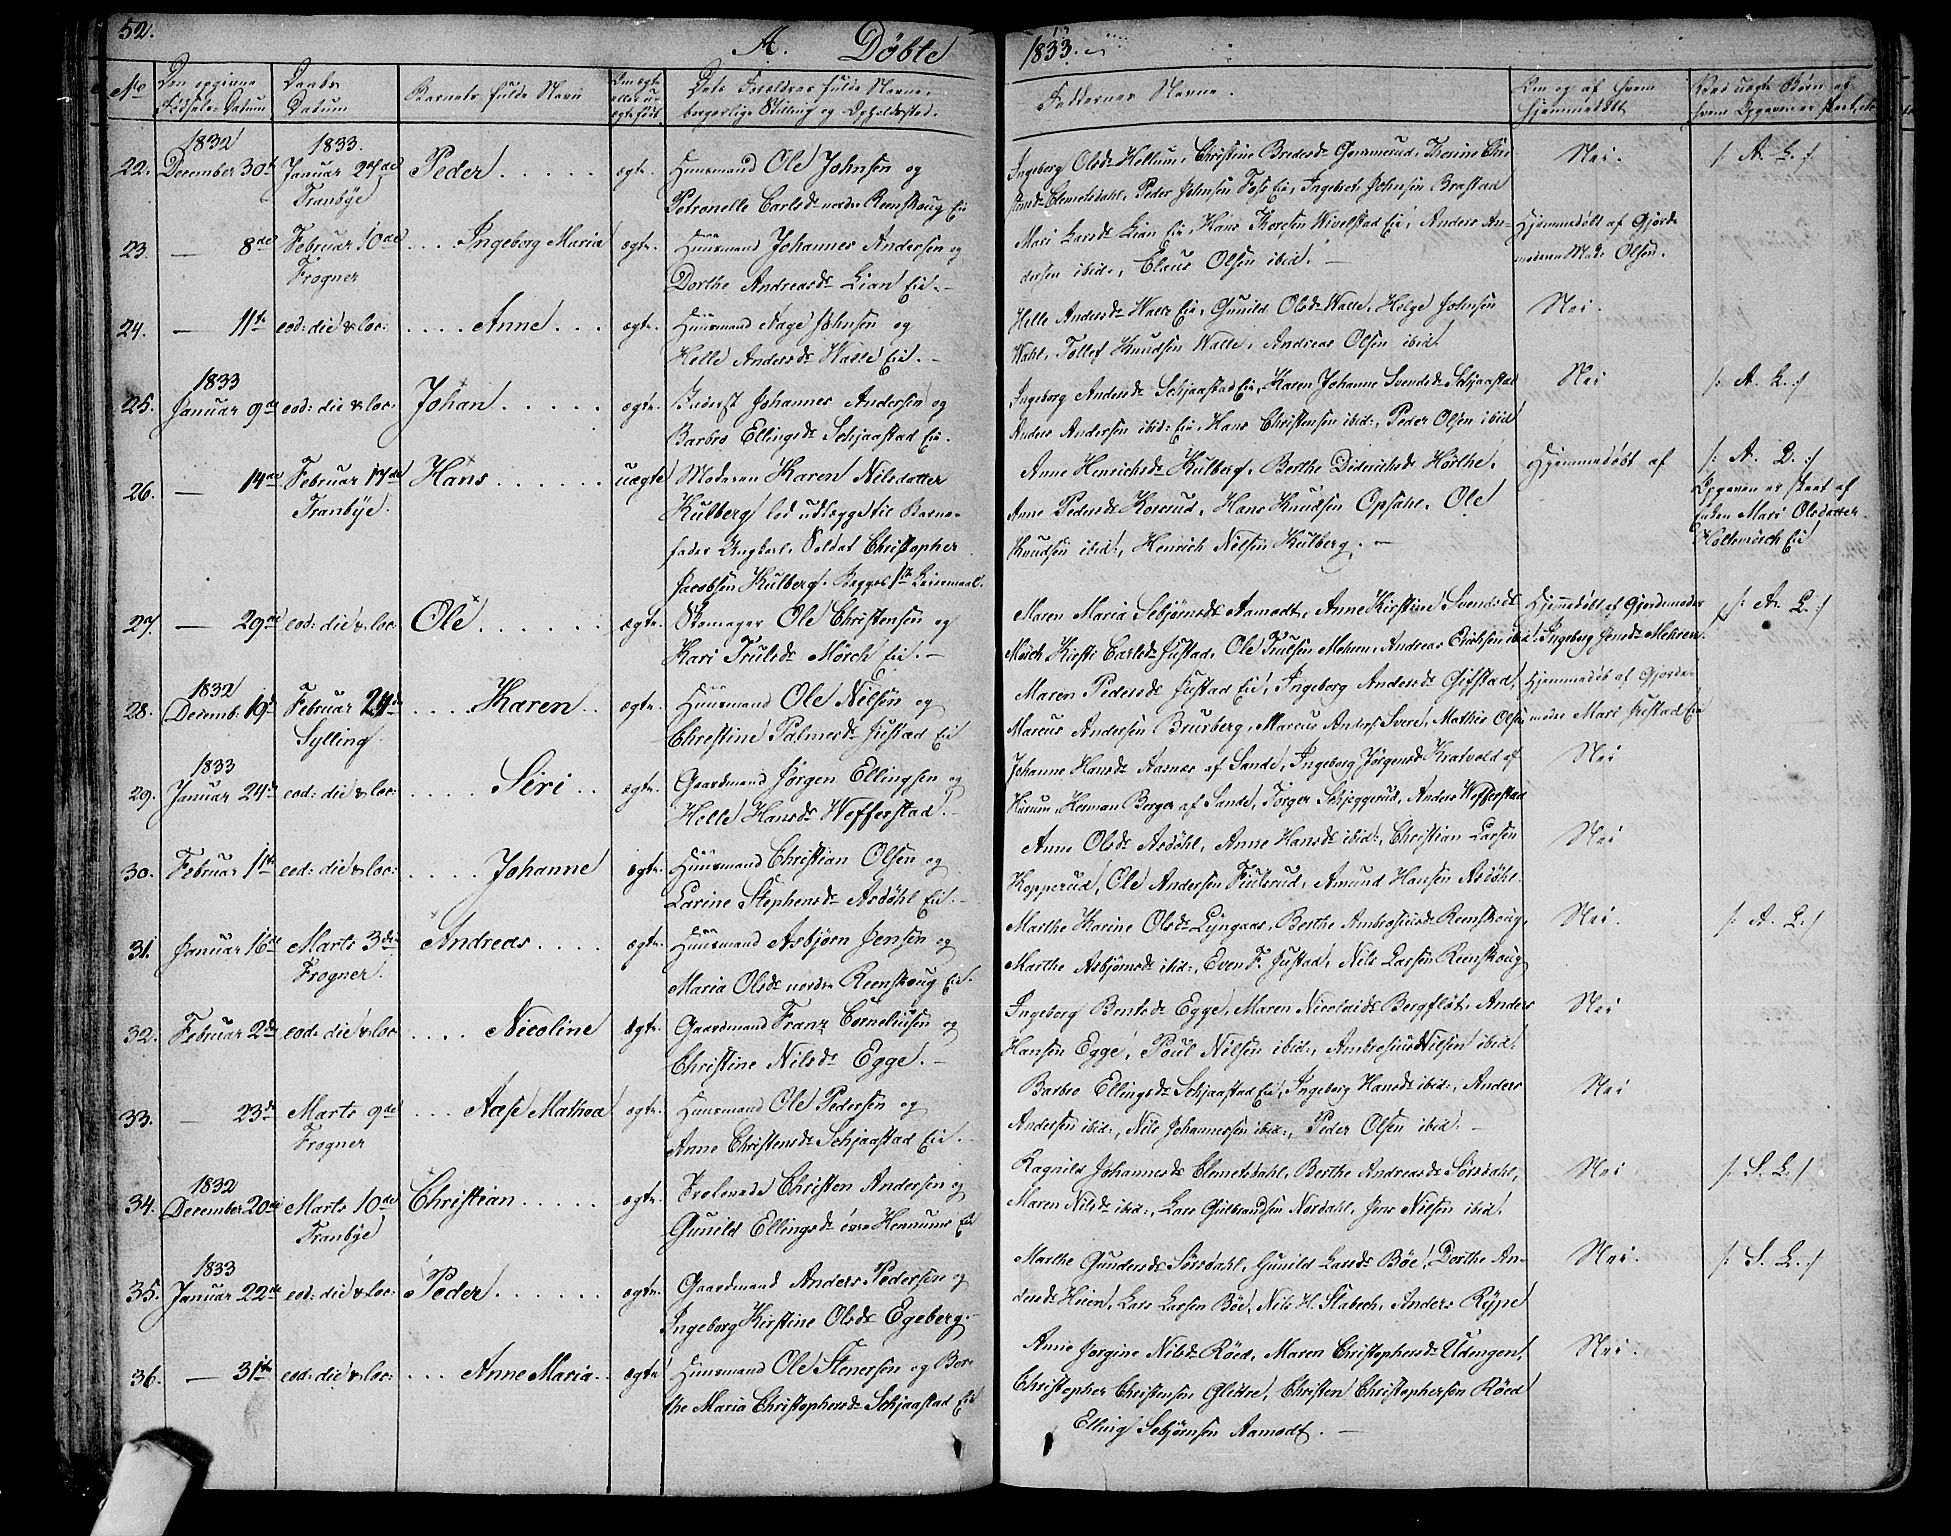 52. A. Døbte 1833.
No Den opgivne Daabs Barnets fulde Navn Om ægte Dets Forældres fulde Navne, Faddernes Navne. Om og af hvem Ved uægte Børn af
Fødsels-Datum Datum eller u- borgerlige Stilling og Opholdssted. hjemmedøbt hvem Opgaven er skeet, etc
ægte født
1832 1833.
22. December 30te Januar 27de Peder ægte. Huusmand Ole Johnsen og
Tranbye Petronelle Carlsdr nordre Reenskoug Eie
Ingeborg Olsdr Hellum, Christine Bredesdr Gommerud, Karine Chri
stensdr Clemetsdahl, Peder Johnsen Foss Eie, Ingebret Johnsen Brastad
Nei. /: A. L. :/
23. — 8de Februar 10de Ingeborg Maria ægte. Huusmand Johannes Andersen og
Frogner Dorthe Andreasdr Lian Eie. —
Mari Larsdr Lian Eie, Hans Wivelstad Eie, Anders An-
dersen ibid:, Claus Olsen ibid. —
Hjemmedøbt af Gjorde-
moderen Mad. Olsen.
24. — 11te eod: die & loc: Anne ægte. Huusmand Aage Johnsen og
Helle Andersdr Walle Eie. —
Helle Andersdr Walle Eie, Gunild Olsdr Walle, Helge Johnsen
Wahl, Tollef Knudsen Walle, Andreas Olsen ibid.
Nei.
1833
25. Januar 9de eod: die & loc: Johan ægte. Johannes Andersen og
Barbro Ellingsdr Schjaastad Eie.
Ingeborg Andersdr Schjaastad Eie, Karen Johanne Svendsdr Schjaastad
Anders Andersen ibid: Eie, Hans Christensen ibid:, Peder Olsen ibid
Nei /: A. L. :/
26. — 14de Februar 17de Hans uægte Moderen Karen Nilsdatter
Tranbye. Kulberg lod udlægge til Barne-
fader Ungkarl, Soldat Christopher
Jacobsen Kulberg. Begges 1te Leiermaal.
Anne Henrichsdr Kulberg, Berthe Diderichsdr Hørthe,
Anne Pedersdr Korsrud, Hans Knudsen Opsahl, Ole
Knudsen ibid:, Henrich Nilsen Kulberg. —
Hjemmedøbt af
/: A. L. :/
Opgaven er skeet af
Enken Mari Olsdatter
Holtemosch Eie
27. — 29de eod: die & loc: Ole ægte. Skomager Ole Christensen og
Kari Trulsdr Mørch Eie. —
Maren Maria Sebjørnsdr Aamodt, Anne Kirstine Svendsdr
Mørch Kirsti Carlsdr Justad, Ole Trulsen Mehren, Andreas Erichsen ibid.
Hjemmdøbt af Gjordemoder
Ingeborg Jensdr Mehren.
/: A. L. :/
1832
28. Decemb. 19de Februar 24de Karen ægte. Huusmand Ole Nilsen og
Sylling. Christine Palmesdr Justad Eie
Maren Pedersdr Justad Eie, Ingeborg Andersdr Gifstad,
Marcus Andersen Bursberg, Marcus Anders. Svere, Mathis Olsen
Hjemmedøb af Gjorde-
modre Mari Justad Eie
1833
29. Januar 24de eod: die & loc: Siri ægte. Gaardmand Jørgen Ellingsen og
Helle Hansdr Wefferstad. —
Johanne Hansdr Aasnæs af Sande, Ingeborg Jørgensdr Kratvold af
Hurum, Herman Berger af Sande, Torger Schjeggerud, Anders Wefferstad
Nei
30. Februar 1te eod: die & loc: Johanne ægte. Huusmand Christian Olsen og
Larine Stephensdr Asdøhl Eie. —
Anne Olsdr Asdøhl, Anne Hansdr ibid:, Christian Larsen
Kopperud, Ole Andersen Fiulsrud, Amund Hansen Asdøhl
Nei
31. Januar 16de Marts 3die Andreas ægte. Huusmand Asbjørn Jensen og
Frogner. Maria Olsdr nordre Reenskoug Eie.
Marthe Karine Olsdr Lyngaas, Berthe Ambrosiusdr Reenskoug,
Marthe Asbjørnsdr ibid:, Even F. Justad, Nils Larsen Reenskoug
Nei. /: A. L. :/
32. Februar 2de eod: die & loc: Nicoline ægte. Gaardmand Franz Corneliusen og
Christine Nilsdr Egge. —
Ingeborg Bentsdr Egge, Maren Nicolaidr Bergfløt, Anders
Hansen Egge, Poul Nilsen ibid:, Ambrosius Nilsen ibid:
Nei
33. — 23de Marts 9de Aase Mathea ægte. Huusmand Ole Pedersen og
Frogner Anne Christensdr Schjaastad Eie. —
Barbro Ellingsdr Schjaastad Eie, Ingeborg Hansdr ibid:, Anders
Andersen ibid:, Nils Johannesen ibid:, Peder Olsen ibid. —
Nei
1832
34. December 20de Marts 10de Christian ægte. Christen Andersen og
Tranbye Gunild Ellingsdr øvre Hennum Eie
Ragnild Johannesdr Clemetsdahl, Berthe Andreasdr Sørsdahl,
Maren Nilsdr ibid:, Lars Gulbrandsen Nordahl, Jens Nilsen ibid.
Nei /: S. L. :/
1833
35. Januar 22de eod: die & loc: Peder ægte. Gaardmand Anders Pedersen og
Ingeborg Kirstine Olsdr Egeberg. —
Marthe Gundersdr Sørsdahl, Gunild Larsdr Bøe, Dorthe An-
dersdr Heien, Lars Larsen Bøe, Nils H. Stabech, Anders Rype
Nei. /: S. L. :/
36. — 31te eod: die & loc: Anne Maria ægte Huusmand Ole Stenersen og Ber-
the Maria Christophersdr Schjaastad Eie
Anne Jørgine Nilsdr Røed, Maren Christophersdr Udengen,
Christopher Christensen Glittre, Christen Christophersen Røed
Elling Sebjørnsen Aamodt. —
Nei.